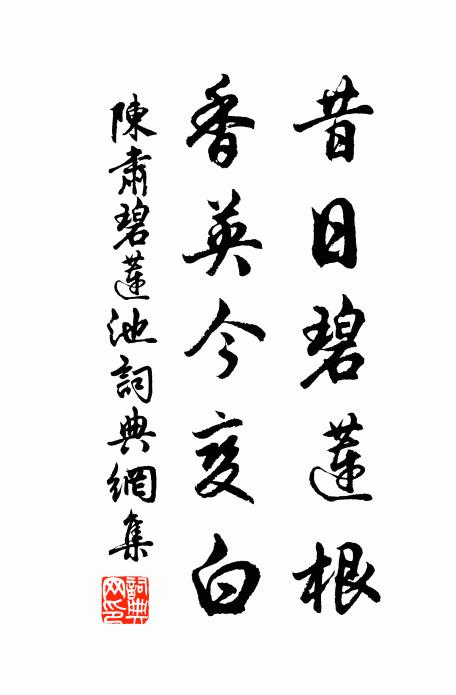 昔日碧蓮根
香英今变白
陳肅碧蓮池詞典網集
詞典